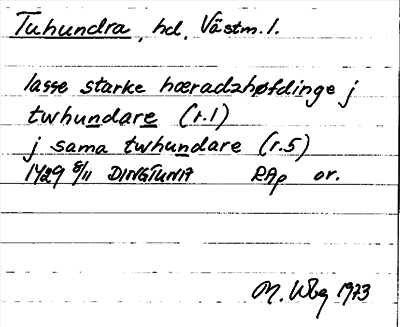 Tuhundra, hd, Västm. l.
lasse starke hæradzhøfdinge j
twhundare (r.1)
j sama twhundare (r.5)
1429 8/11 DINGTUNA RAp or.
M. Wbg 1973